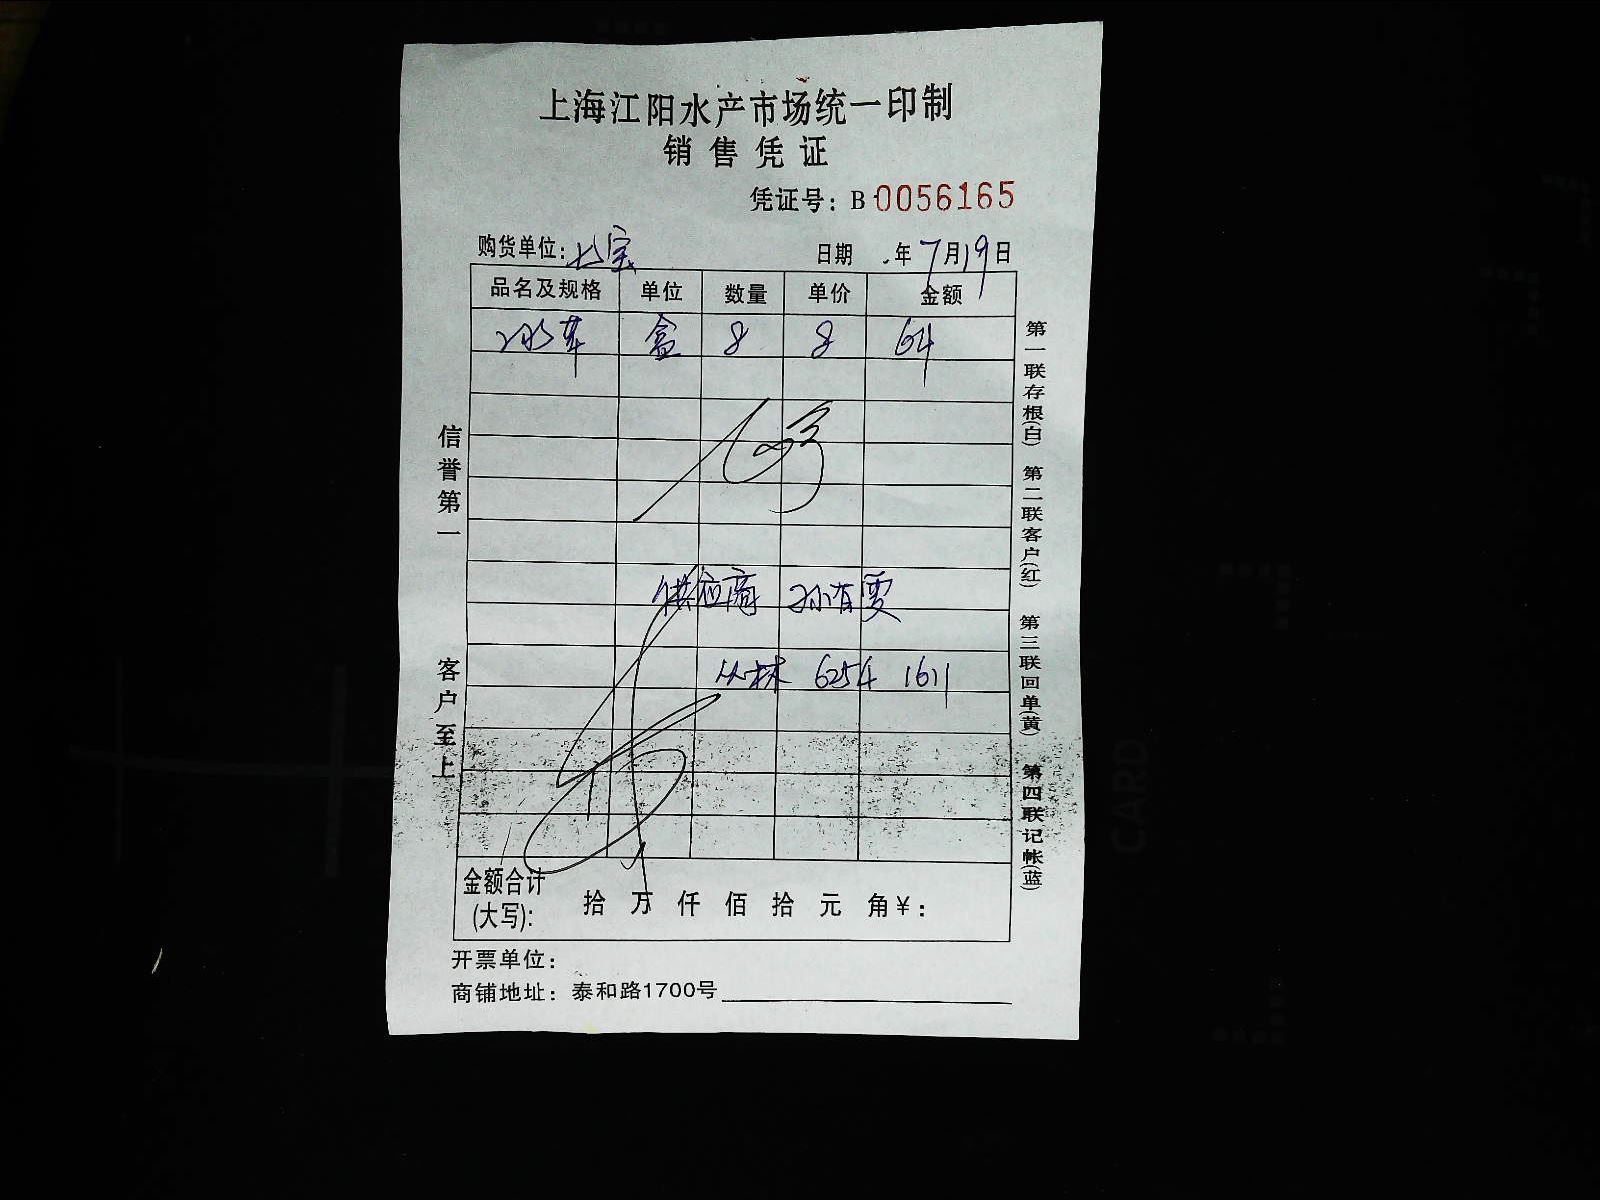 上海江阳水产市场统一印制
销售凭证
凭证号：B 0056165
购货单位：七宝 日期 年7月19日
品名及规格 单位 数量 单价 金额
冰草 盒 8 8 64
供应商 孙有雯
丛林 6254 1611
金额合计(大写)： 拾 万 仟 佰 拾 元 角￥：
开票单位：
商铺地址：泰和路1700号
信誉第一 客户至上
第一联存根(白) 第二联客户(红) 第三联回单(黄) 第四联记帐(蓝)